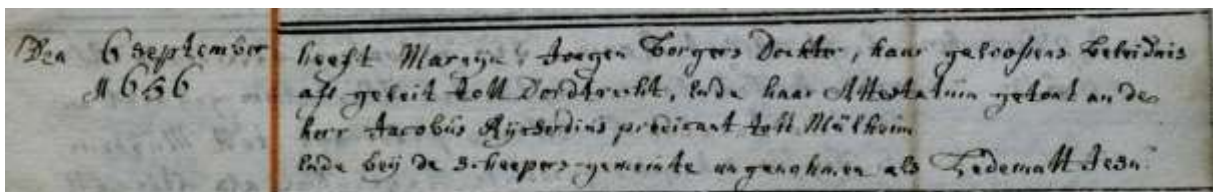 Den 6 September
1656
heeft Marryn, Joegen Borgers Dochter, haar geloofsens beleidnis
afe geleit Tott Dordtrecht, Ende haar Attestatium getont an de
herr Jacobus predicant tott Mülheim
Ende beij de scheepers-gemeinte angenohmen als Ledematt Jesu